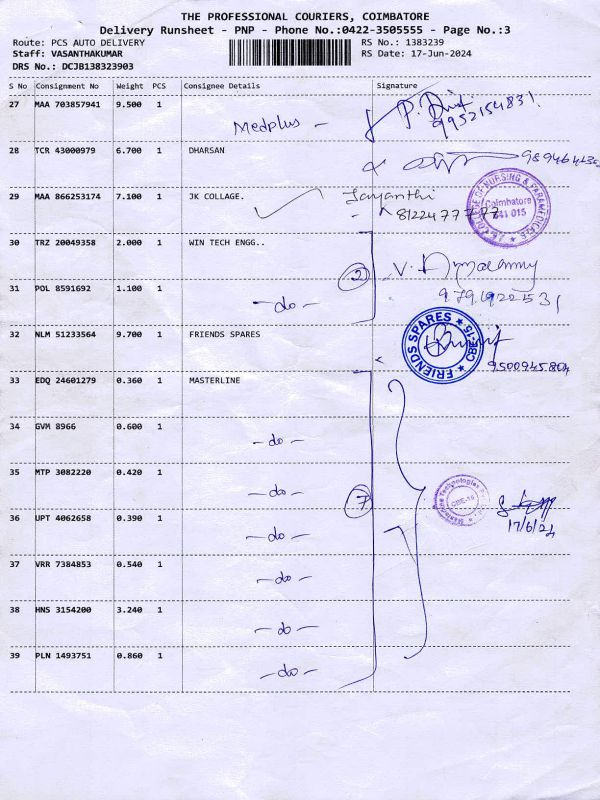 THE PROFESSIONAL COURIERS, COIMBATORE
Delivery Runsheet - PNP - Phone No.:0422-3505555 - Page No.:3
Route: PCS AUTO DELIVERY RS No.: 1383239
Staff: VASANTHAKUMAR RS Date: 17-Jun-2024
DRS No.: DCJB138323903
S No Consignment No Weight PCS Consignee Details Signature
27 MAA 703857941 9.500 1
Medplus -
9952154831.
28 TCR 43000979 6.700 1 DHARSAN
29 MAA 866253174 7.100 1 JK COLLAGE. Jayanthi
8122477777
COLLEGE OF NURSING & PARAMEDICAL
Coimbatore
641 015
30 TRZ 20049358 2.000 1 WIN TECH ENGG..
2
31 POL 8591692 1.100 1
- do -
32 NLM 51233564 9.700 1 FRIENDS SPARES
FRIENDS SPARES ★ CBE-15 ★
9500945804
33 EDQ 24601279 0.360 1 MASTERLINE
34 GVM 8966 0.600 1
- do -
35 MTP 3082220 0.420 1
- do -
7
CBE-15
17/6/24
36 UPT 4062658 0.390 1
- do -
37 VRR 7384853 0.540 1
- do -
38 HNS 3154200 3.240 1
- do -
39 PLN 1493751 0.860 1
- do -